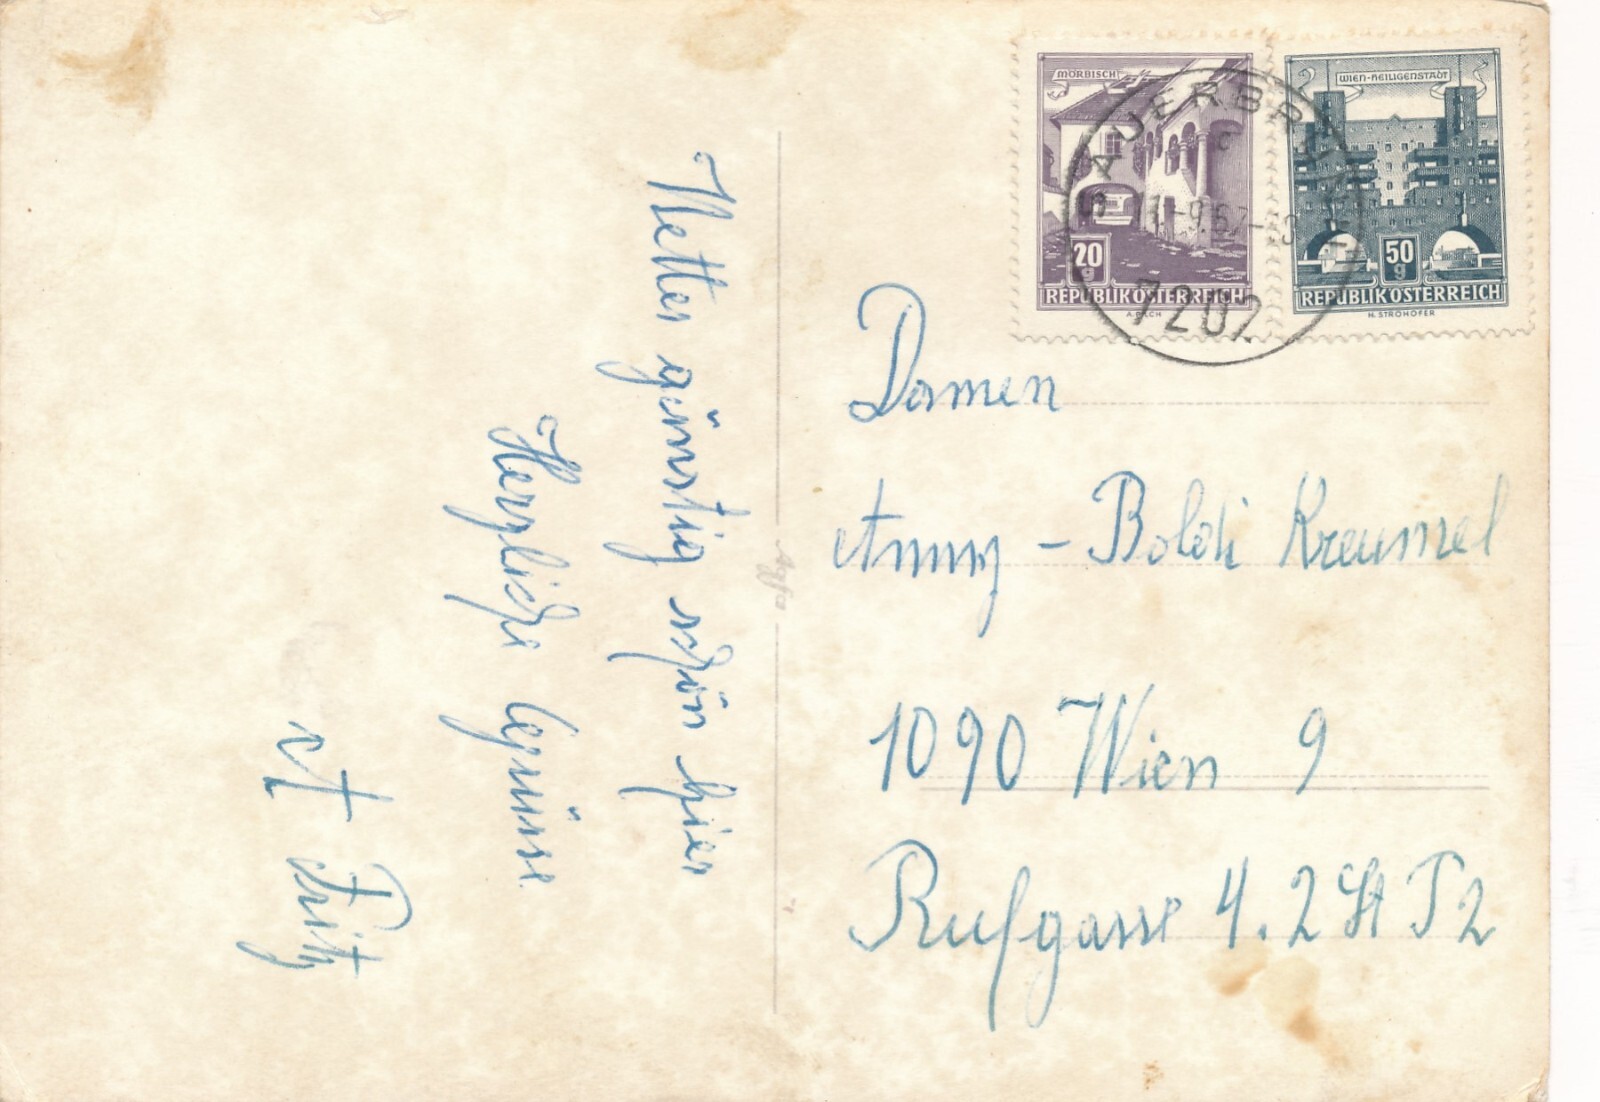 Wetter günstig schön hier
Herzliche Grüsse
Fritz
Agfa
MÖRBISCH
20
g
REPUBLIK ÖSTERREICH
WIEN-HEILIGENSTADT
50
g
REPUBLIK ÖSTERREICH
H. STROHOFER
SAUERBRUNN
-9.67-
7202
Damen
Anny - Boldi Kreumel
1090 Wien 9
Rufgasse 4. 2 St T 2